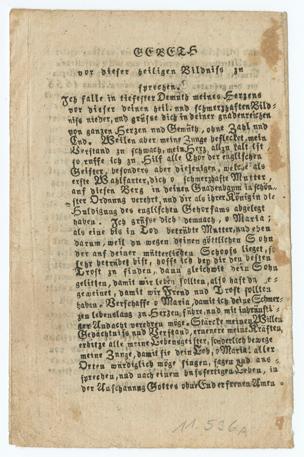 GEBETH
vor dieser heiligen Bildniß zu
sprechen.
Ich falle in tiefester Demuth meines Herzens
vor dieser deinen heil. und schmerzhaften Bild-
niß nieder, und grüße dich in deiner gnadenreichen
von ganzen Herzen und Gemüth, ohne Zahl und
End. Weilen aber meine Zunge beflecket, mein
Verstand zu schwach, mein Herz allzu kalt ist
so ruffe ich zu Hilf alle Chör der englischen
Geister, besonders aber diejenigen, welche als
erste Wahlfarter, dich o schmerzhafte Mutter,
auf diesen Berg in deinen Gnadenbaum in schön-
ster Ordnung verehret, und dir als ihrer Königin die
Huldigung des englischen Gehorsams abgelegt
haben. Ich grüße dich demnach, o Maria;
als eine bis in Tod betrübte Mutter, und eben
darum, weil du wegen deinen göttlichen Sohn
der auf deiner mütterlichen Schooß lieget, so
sehr betrübt bist, hoffe ich bey dir den besten
Trost zu finden, dann gleichwie dein Sohn
gelitten, damit wir leben sollen, also hast du
geweinet, damit wir Freud und Trost sollten
haben. Verschaffe o Maria, damit ich deine Schmer-
zen lebenslang zu Herzen führe, und mit inbrünsti-
ger Andacht verehren möge. Stärcke meinen Willen
Gedächtnis und Verstand, ermuntre meine Kräften,
erhitze alle meine Lebensgeister, sonderlich bewege
meine Zunge, damit sie dein Lob, o Maria! aller
Orten würdiglich möge singen, sagen und aus
sprechen, und nach einem bußfertigen Leben, in
der Anschauung Gottes ohne End erfreuen Amen
11.536A